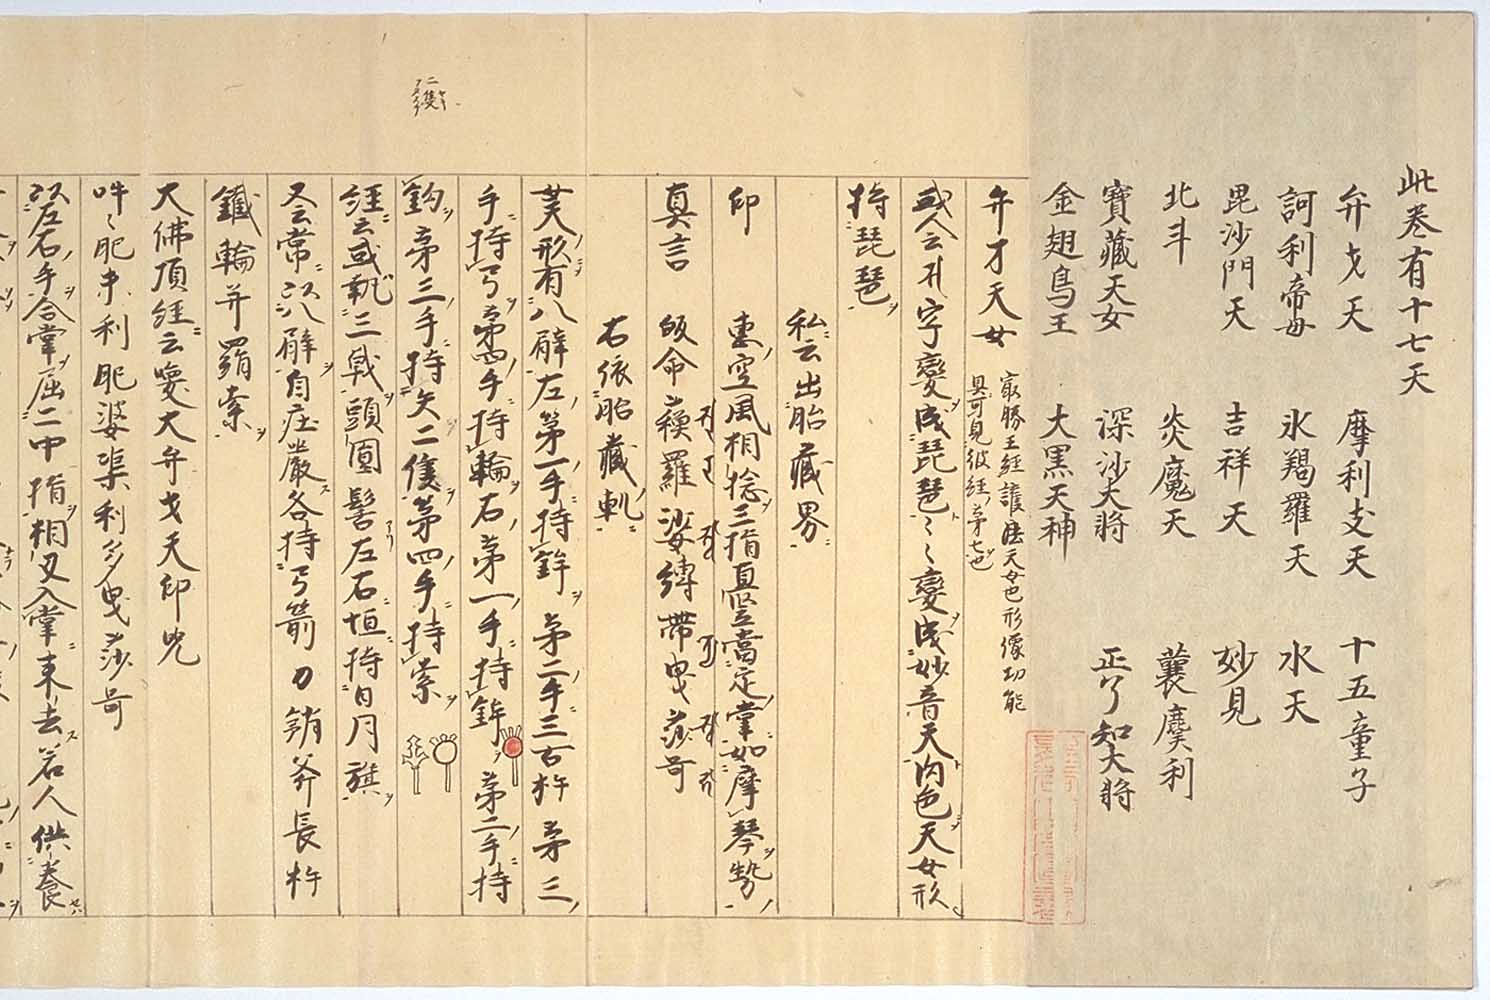 此卷有十七天
弁才天 摩利支天 十五童子
訶利帝母 氷羯羅天 水天
毘沙門天 吉祥天 妙見
北斗 炎魔天 蘘麌利
寶藏天女 深沙大將 正了知大將
金翅鳥王 大黒天神
弁才天女 最勝王經護法天女色形像功能
具可見彼經第七也
或人云 字變成琵琶〻〻變成妙音天肉色天女形
持琵琶
私云出胎藏界
印 惠空風相捻三指直竪當定掌如摩琴勢
真言 皈命 蘓羅 娑縛 帶曳 莎呵
右依胎藏軌
其形有八臂左第一手持鉾 第二手三古杵 第三
手持弓第四手持輪右第一手持鉾 第二手持
鈎第三手持矢二隻第四手持索
二隻
經云或執三戟頭圓髻左右恒持日月旗
又云常以八臂自莊嚴各持弓箭刀鞘斧長杵
鐵輪并羂索
大佛頂經云 大弁才天印咒
吽〻肥 利肥婆 利多曳莎呵
以左右手合掌屈二中指相叉入掌来去若人供養